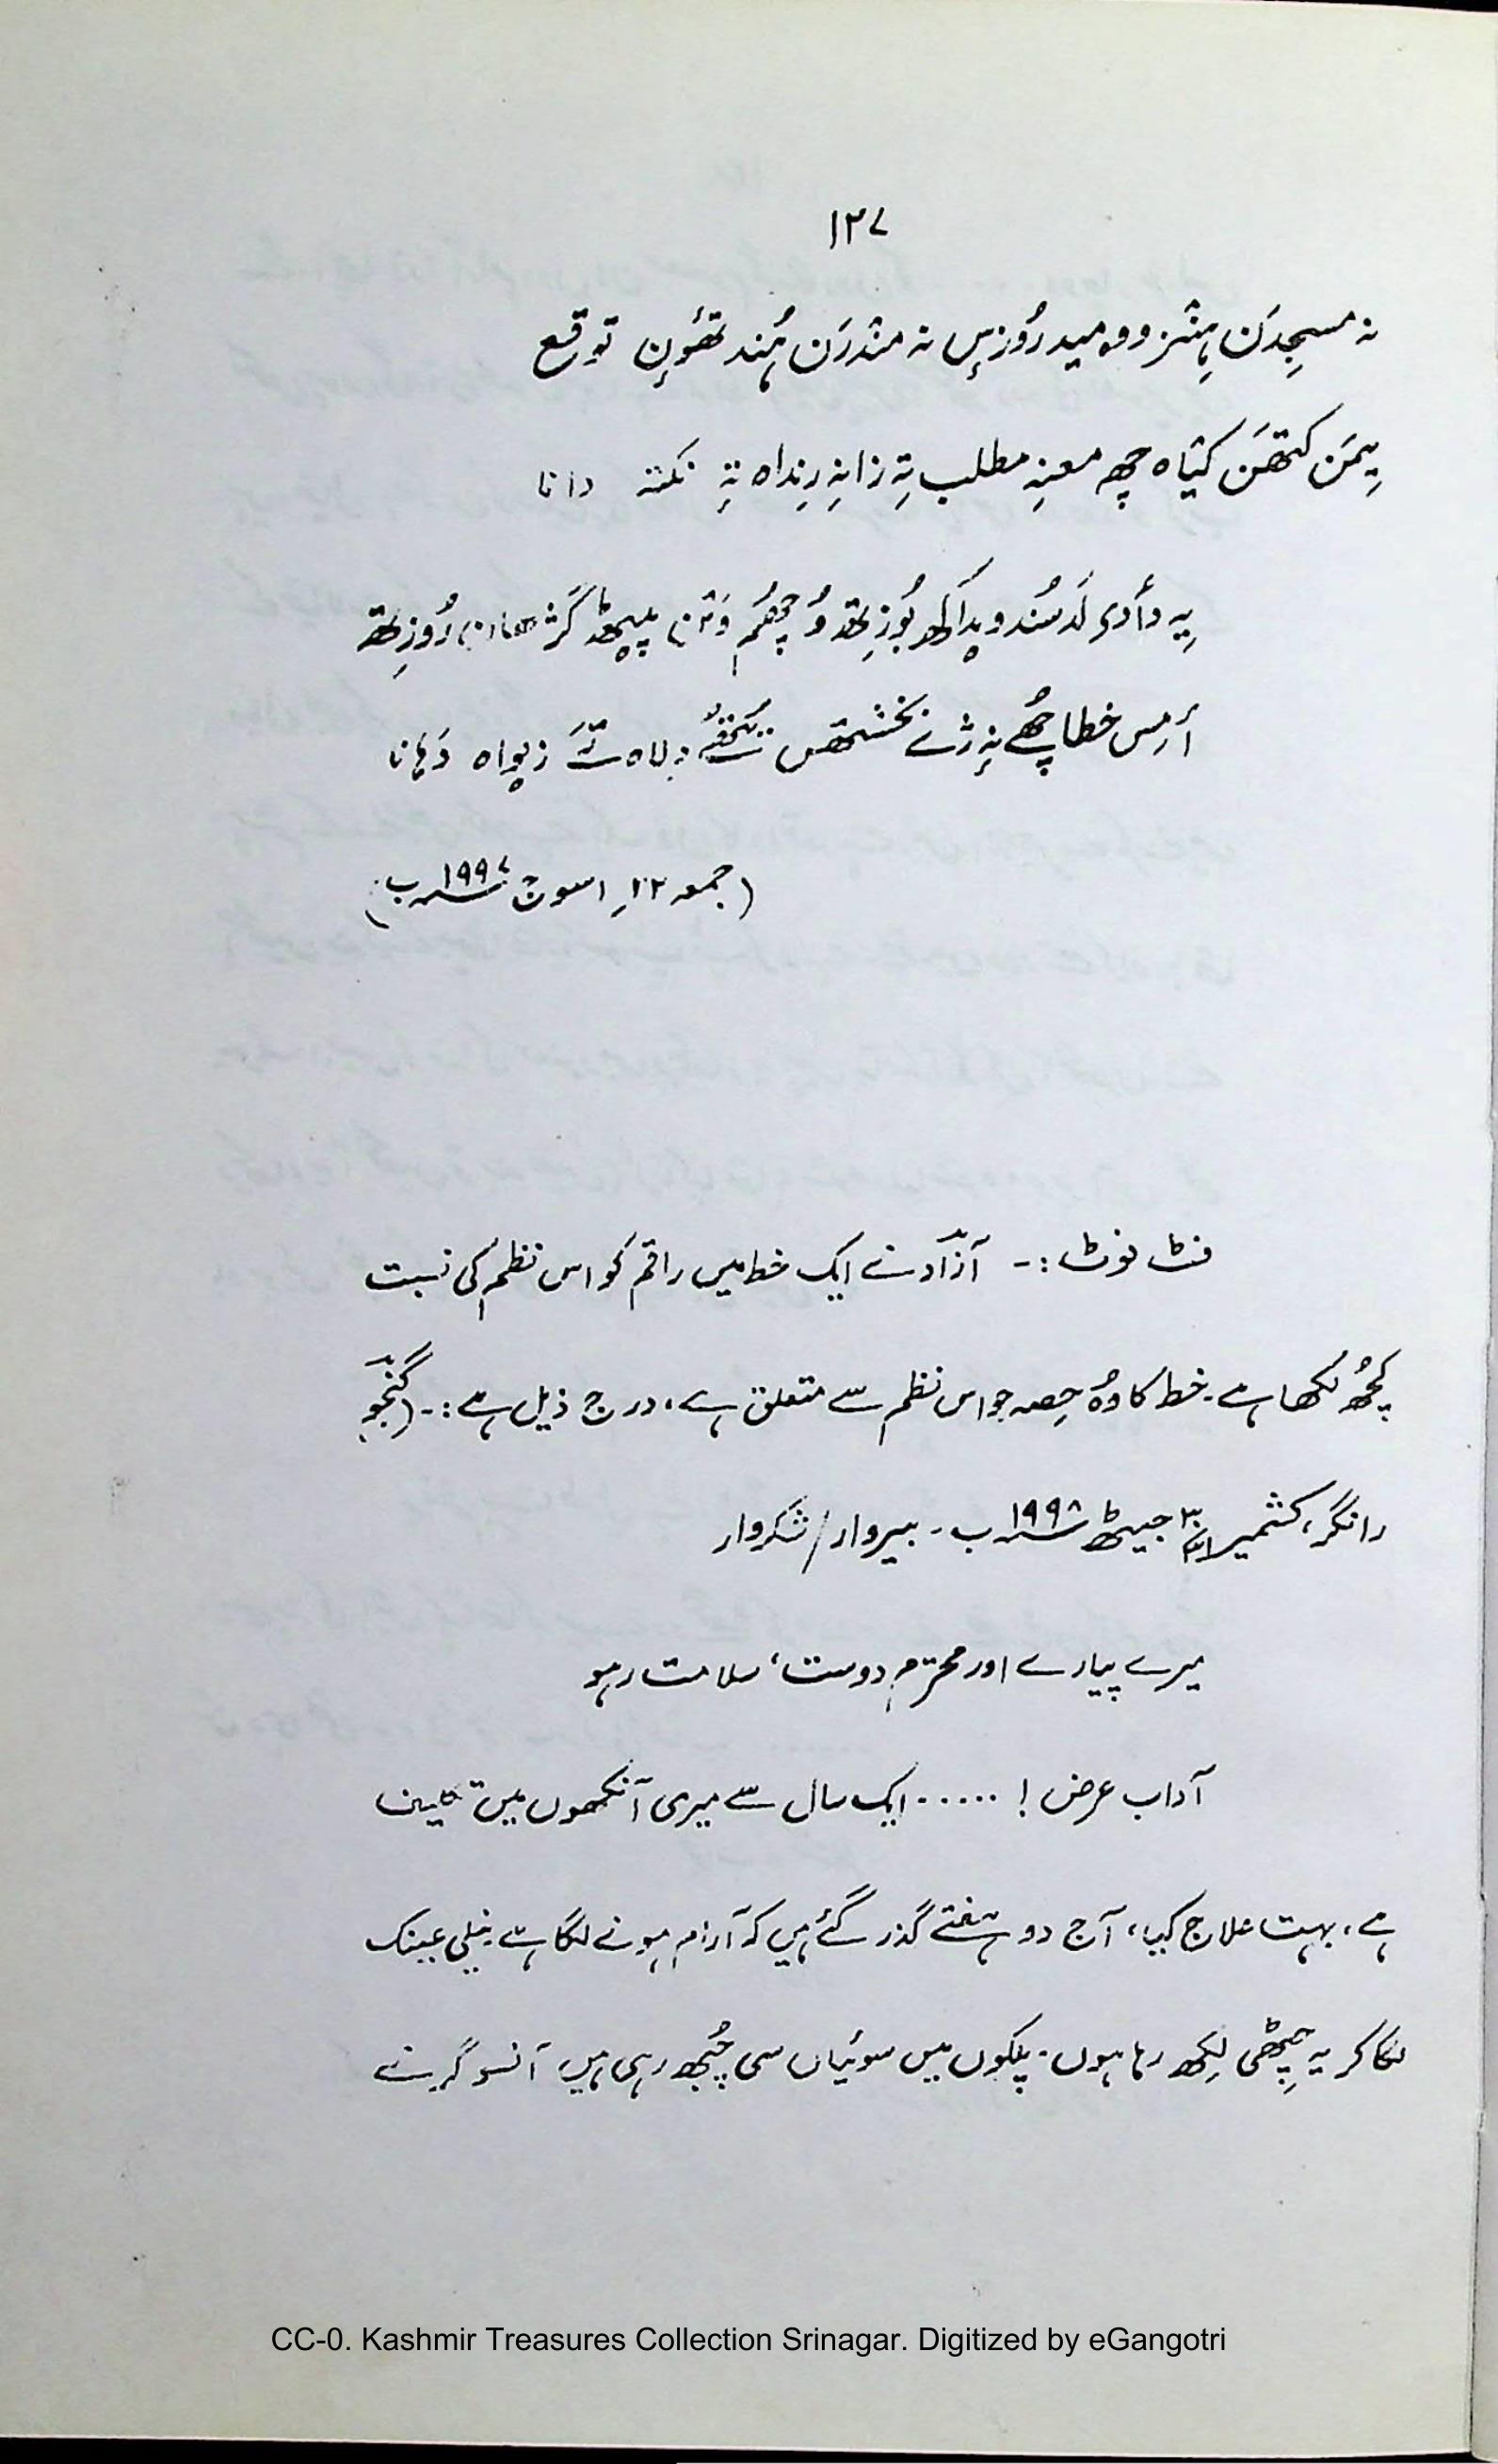 ۱۲۷
نہ مسجِدَن ہِنٛز وومید رُوزِس نہ مندرَن ہُند تھوٚن توقع
یِمَن کتھَن کیٛاہ چھ معنہِ مطلب تہِ زانہِ رِنداہ تہِ نکتہ دانا
یہِ دأدی لَد سُند ویداکھ بُوزِتھ وُچھُم وَننا پیٹھ گژھانا رُوزِتھ
أمِس خطا چھُے نہِ ژےٚ بخشتھس زیواہ دَہانا
(جمعہ ۲۲؍ اسوج ۱۹۹۷ ب)
فٹ نوٹ :- آزاد نے ایک خط میں راقم کو اس نظم کی نسبت
کچھُ لکھا ہے۔ خط کا وہُ حِصہ جو اس نظم سے متعلق ہے، درج ذیل ہے :- (گنجو)
رانگر، کشمیر ۳۰ جیٹھ ۱۹۹۸ ب۔ بیروار/شکروار
میرے پیارے اور محترم دوست، سلامت رہو
آداب عرض ! ...... ایک سال سے میری آنکھوں میں تکلیف
ہے، بہت علاج کیا، آج دو ہفتے گذر گئے ہیں کہ آرام ہونے لگا ہے نیلی عینک
لگا کر یہ چِٹھی لِکھ رہا ہوں۔ پلکوں میں سوئیاں سی چُبھ رہی ہیں آنسو گرنے
CC-0. Kashmir Treasures Collection Srinagar. Digitized by eGangotri